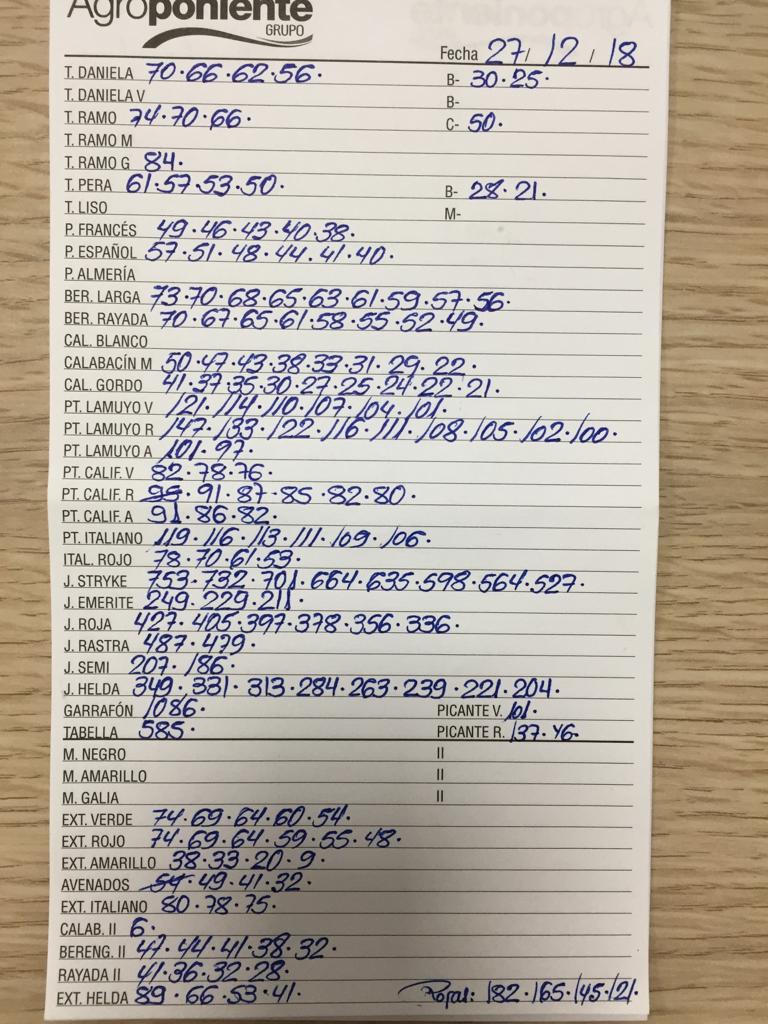 Agroponiente
GRUPO
Fecha 27/12/18
T. DANIELA 70·66·62·56· B- 30·25·
T. DANIELA V B-
T. RAMO 74·70·66· C- 50·
T. RAMO M
T. RAMO G 84·
T. PERA 61·57·53·50· B- 28·21·
T. LISO M-
P. FRANCÉS 49·46·43·40·38·
P. ESPAÑOL 57·51·48·44·41·40·
P. ALMERÍA
BER. LARGA 73·70·68·65·63·61·59·57·56·
BER. RAYADA 70·67·65·61·58·55·52·49·
CAL. BLANCO
CALABACÍN M 50·47·43·38·33·31·29·22·
CAL. GORDO 41·37·35·30·27·25·24·22·21·
PT. LAMUYO V 121·114·110·107·104·101·
PT. LAMUYO R 147·133·122·116·111·108·105·102·100·
PT. LAMUYO A 101·97·
PT. CALIF. V 82·78·76·
PT. CALIF. R 95·91·87·85·82·80·
PT. CALIF. A 91·86·82·
PT. ITALIANO 119·116·113·111·109·106·
ITAL. ROJO 78·70·61·53·
J. STRYKE 753·732·701·664·635·598·564·527·
J. EMERITE 249·229·211·
J. ROJA 427·405·397·378·356·336·
J. RASTRA 487·479·
J. SEMI 207·186·
J. HELDA 349·331·313·284·263·239·221·204·
GARRAFÓN 1086· PICANTE V. 101·
TABELLA 585· PICANTE R. 137·46·
M. NEGRO II
M. AMARILLO II
M. GALIA II
EXT. VERDE 74·69·64·60·54·
EXT. ROJO 74·69·64·59·55·48·
EXT. AMARILLO 38·33·20·9·
AVENADOS 54·49·41·32·
EXT. ITALIANO 80·78·75·
CALAB. II 6·
BERENG. II 47·44·41·38·32·
RAYADA II 41·36·32·28·
EXT. HELDA 89·66·53·41· 182·165·145·121·